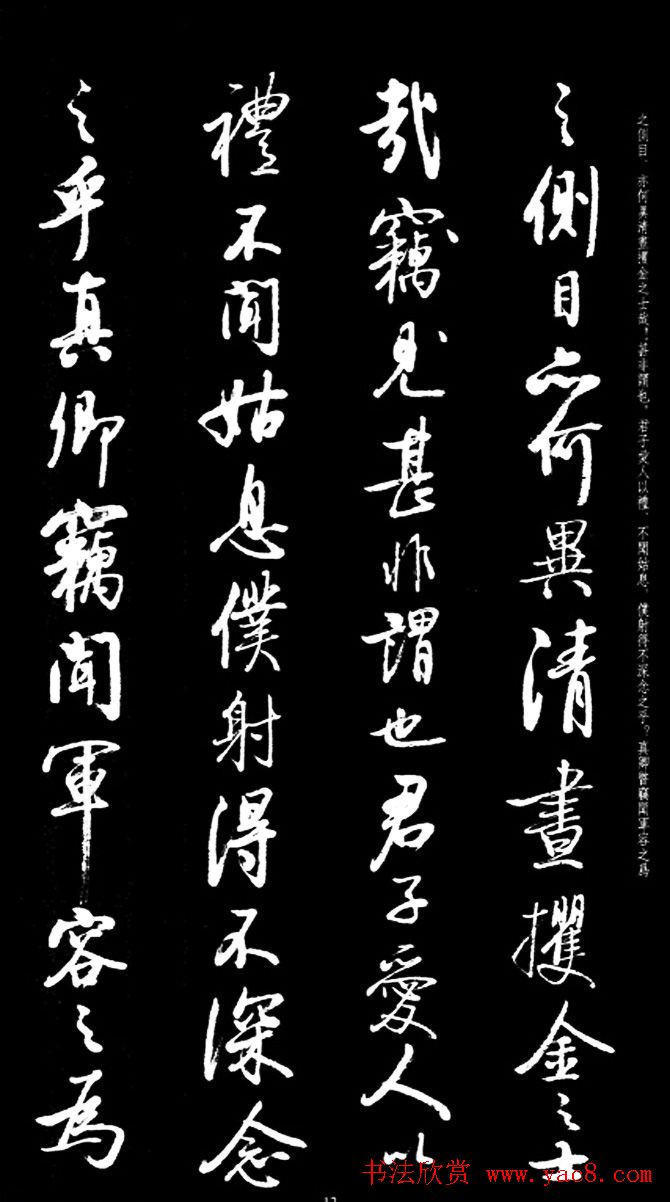 之側目、亦何異清晝攫金之士哉！甚非謂也。君子愛人以禮，不聞姑息，僕射得不深念之乎？真卿竊聞軍容之為
之側目亦何異清晝攫金之士
哉竊見甚非謂也君子愛人以
禮不聞姑息僕射得不深念
之乎真卿竊聞軍容之為
书法欣赏 www.yac8.com